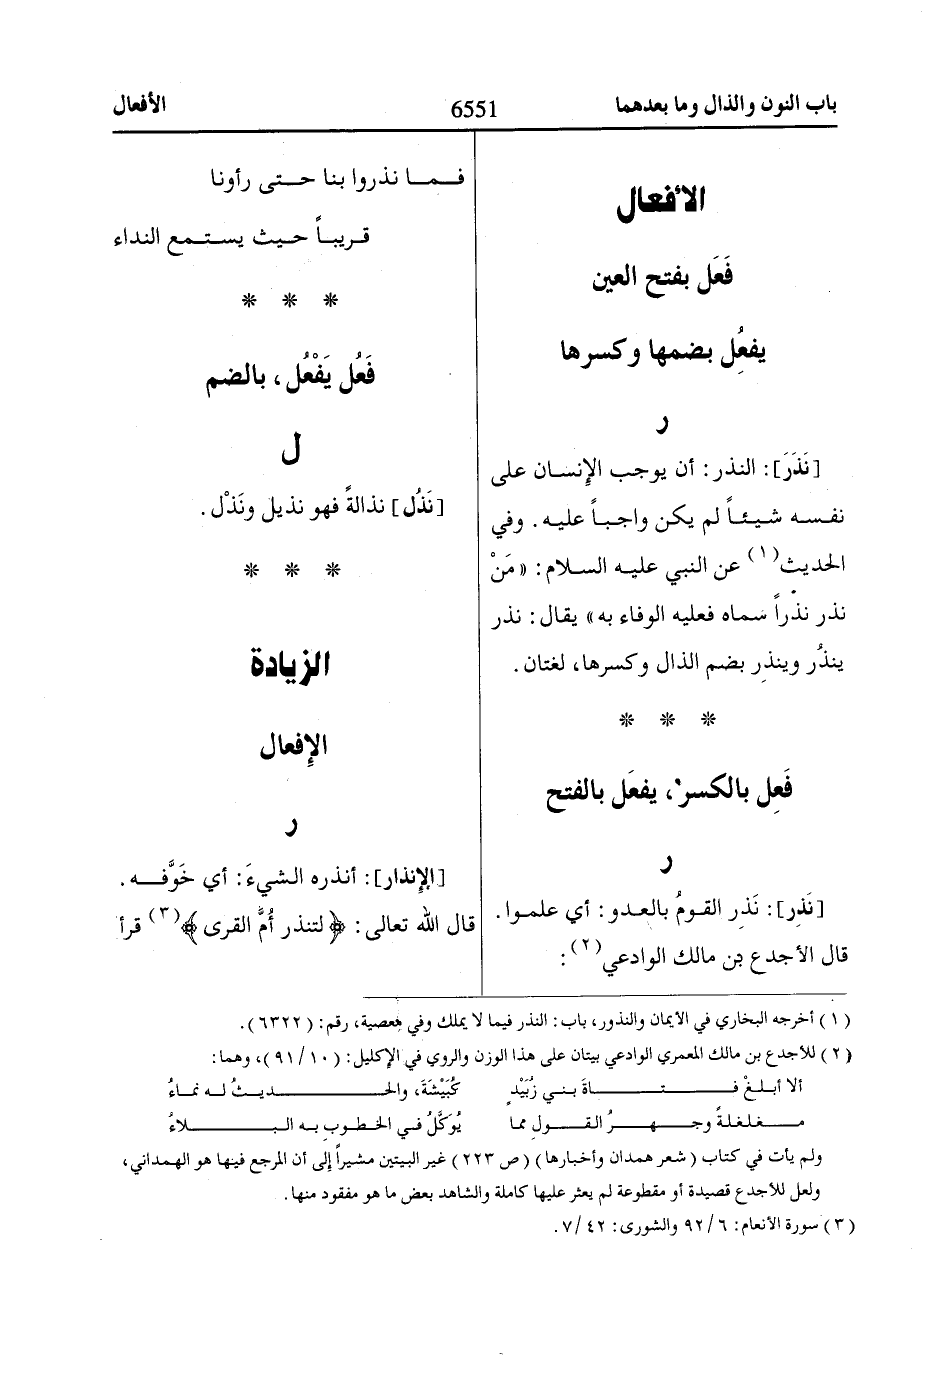 باب النون والذال وما بعدهما
6551
الأفعال
الأفعال
فَعَل بفتح العين
يفعُلِ بضمها وكسرها
ر
[نَذَرَ]: النذر: أن يوجب الإنسان على
نفسه شيئاً لم يكن واجباً عليه. وفي
الحديث(١) عن النبي عليه السلام: «مَنْ
نذر نذراً سماه فعليه الوفاء به» يقال: نذر
ينذُر وينذِر بضم الذال وكسرها، لغتان.
* * *
فَعِل بالكسر، يفعَل بالفتح
ر
[نَذِر]: نَذِر القومُ بالعدو: أي علموا.
قال الأجدع بن مالك الوادعي(٢):
فما نذروا بنا حتى رأونا
قريباً حيث يستمع النداء
* * *
فَعُل يَفْعُل، بالضم
ل
[نَذُل] نذالةً فهو نذيل ونَذْل.
* * *
الزيادة
الإفعال
ر
[الإنذار]: أنذره الشيءَ: أي خَوَّفه.
قال الله تعالى: ﴿لتنذر أُمَّ القرى﴾(٣) قرأ
(١) أخرجه البخاري في الأيمان والنذور، باب: النذر فيما لا يملك وفي معصية، رقم: (٦٣٢٢).
(٢) للأجدع بن مالك المعمري الوادعي بيتان على هذا الوزن والروي في الإكليل: (٩١/١٠)، وهما:
ألا أبلغْ فتاةَ بني زُبَيْدٍ كُبَيْشَةَ، والحديثُ له نماءُ
مغلغلةً وجهرُ القول مما يُوَكَّلُ في الخطوب به البلاءُ
ولم يأت في كتاب (شعر همدان وأخبارها) (ص ٢٢٣) غير البيتين مشيراً إلى أن المرجع فينها هو الهمداني،
ولعل للأجدع قصيدة أو مقطوعة لم يعثر عليها كاملة والشاهد بعض ما هو مفقود منها.
(٣) سورة الأنعام: ٩٢/٦ والشورى: ٧/٤٢.